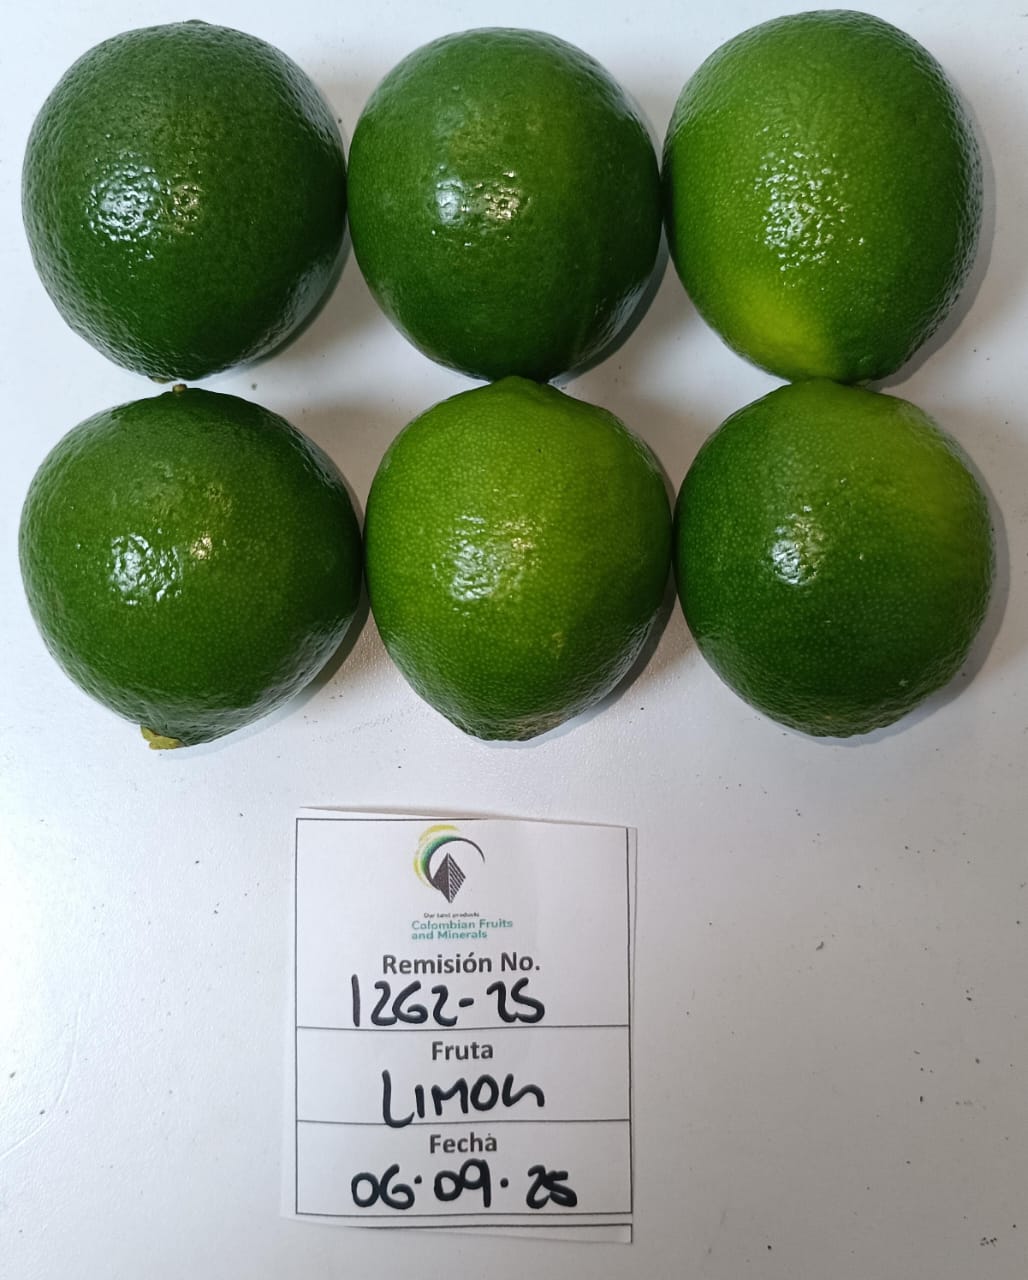 Our land products
Colombian Fruits
and Minerals
Remisión No.
1262-25
Fruta
LIMON
Fecha
06.09.25